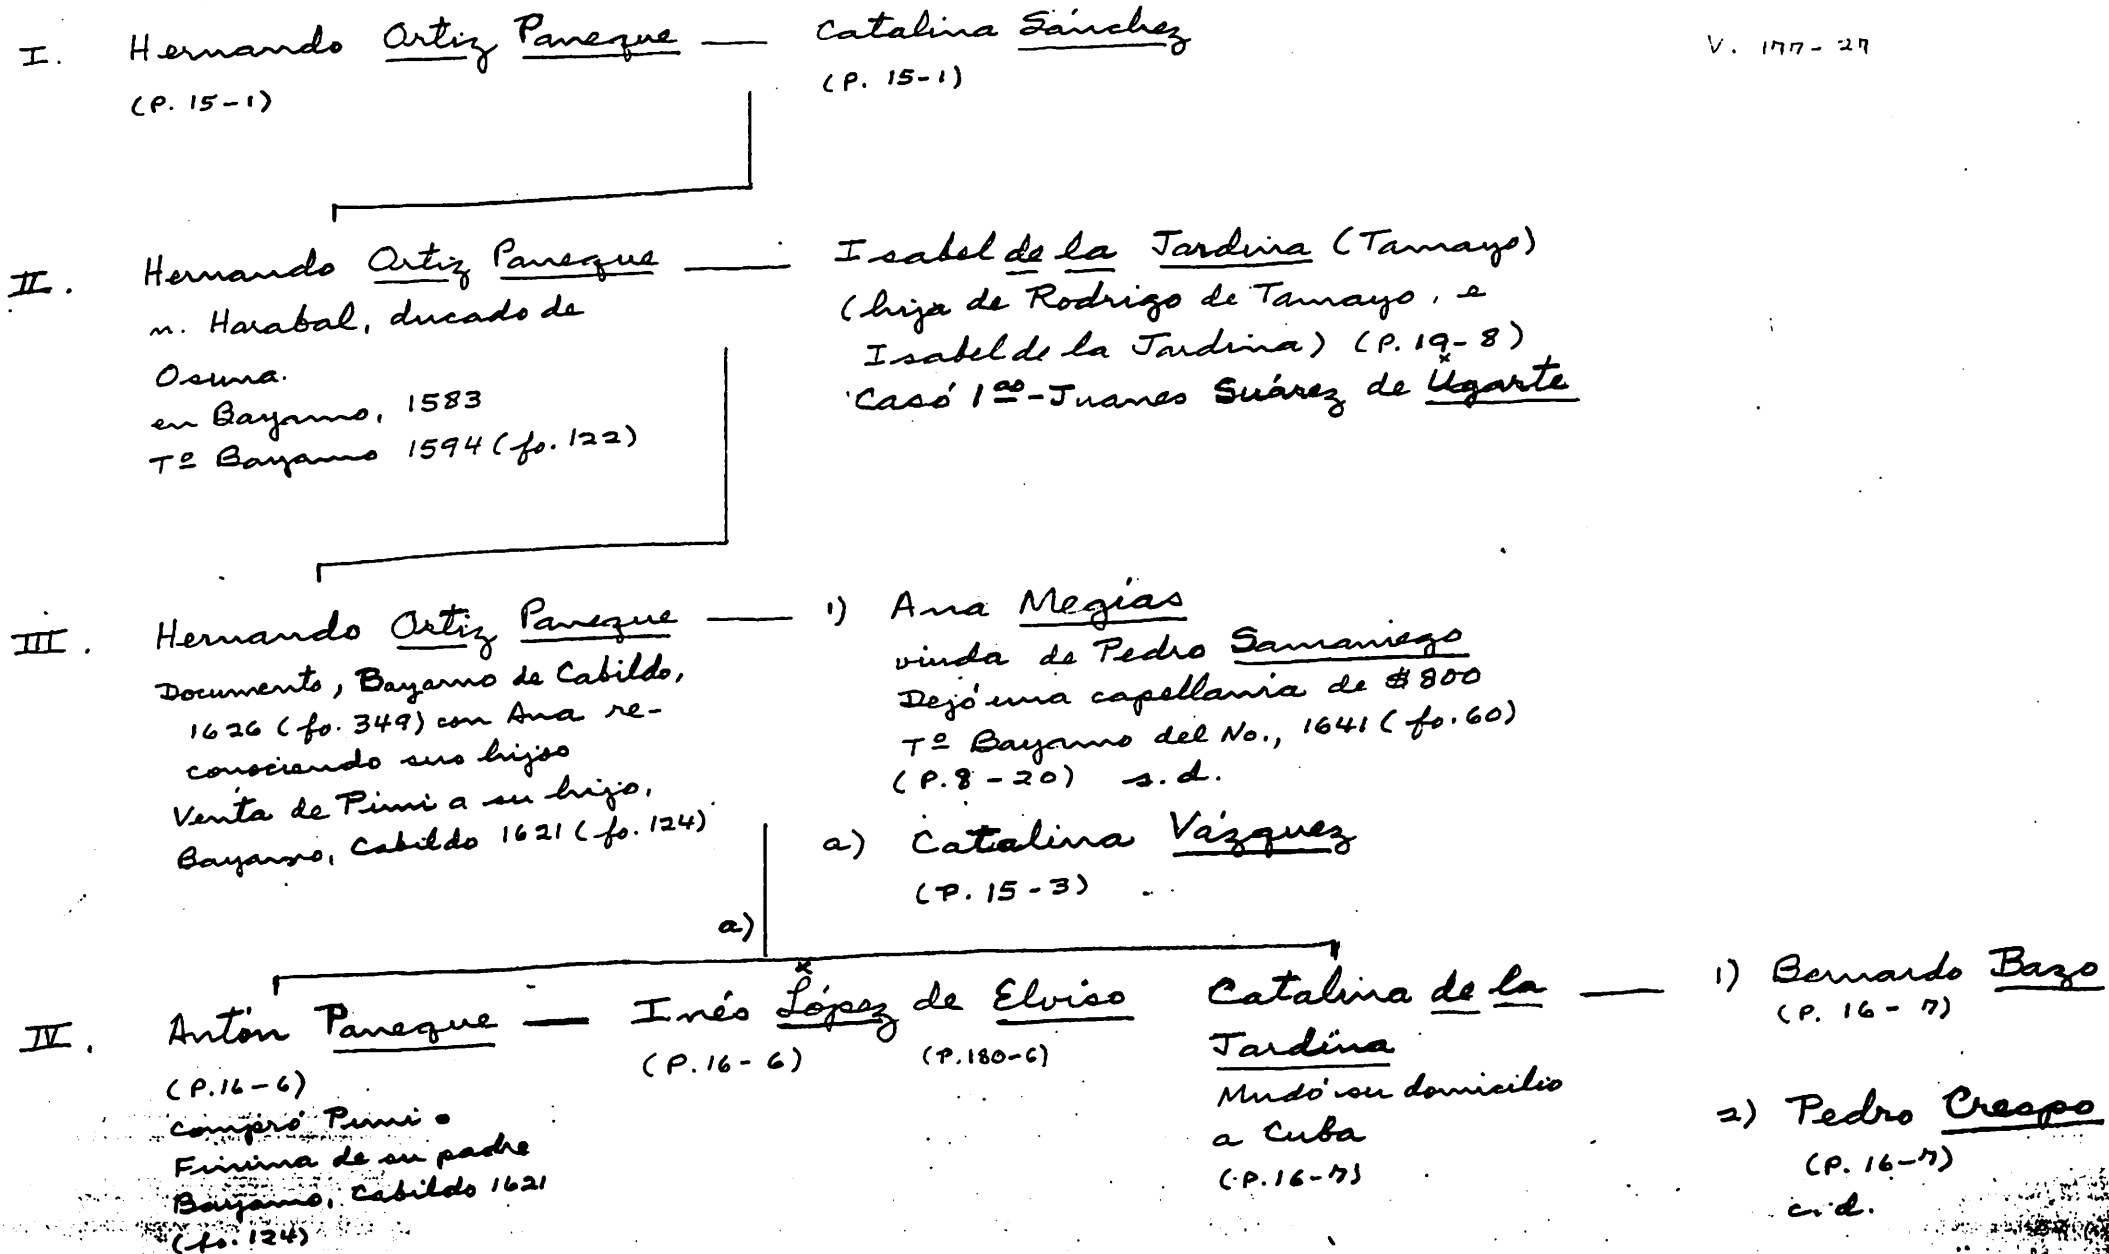 I. Hernando Ortiz Paneque — Catalina Sánchez
V. 177-27
(P. 15-1)
(P. 15-1)
II. Hernando Ortiz Paneque — Isabel de la Jardina (Tamayo)
n. Harabal, ducado de
Osuna.
en Bayamo, 1583
Tº Bayamo 1594 (fo. 122)
(hija de Rodrigo de Tamayo, e
Isabel de la Jardina) (P. 19-8)
Casó 1ᵃˢ - Juanes Suárez de Ugarte
III. Hernando Ortiz Paneque — 1) Ana Megías
Documento, Bayamo de Cabildo,
1626 (fo. 349) con Ana re-
conociendo sus hijos
Venta de Pimi a su hijo,
Bayamo, Cabildo 1621 (fo. 124)
viuda de Pedro Samaniego
Dejó una capellanía de $800
Tº Bayamo del No., 1641 (fo. 60)
(P. 8-20) s.d.
a) Catalina Vázquez
(P. 15-3)
a)
x
IV. Antón Paneque — Inés López de Elviso
(P. 16-6)
Compró Pimi o
de su padre
Bayamo, Cabildo 1621
(fo. 124)
(P. 16-6) (P. 180-6)
Catalina de la
Jardina
Mudó su domicilio
a Cuba
(P. 16-7)
1) Bernardo Bazo
(P. 16-7)
2) Pedro Crespo
(P. 16-7)
c.d.